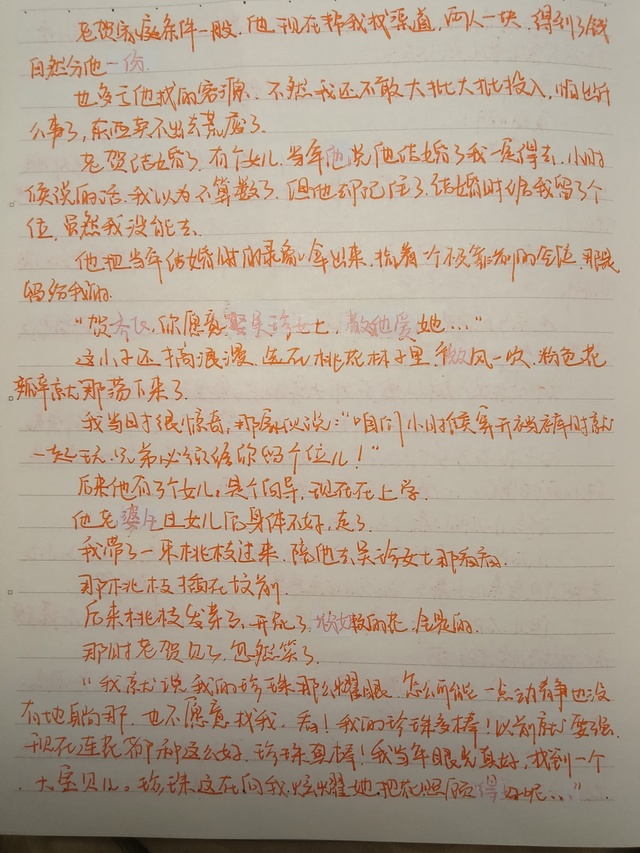 老贺家庭条件一般，他现在帮我找渠道，两人一块，得到了钱
自然分他一份.
也多亏他找的客源，不然我还不敢大批大批投入，怕出什
么事了，东西卖不出去荒废了.
老贺结婚了，有个女儿，当年他说他结婚了我一定得去，小时
候说的话，我以为不算数了，但他却记住了，结婚时给我留了个
位，虽然我没能去.
他把当年结婚时的录像拿出来，指着一个不近的空位，那是
留给我的.
"贺齐飞，你愿意娶吴珍女士，敬她爱她..."
这小子还搞浪漫，选在桃花林子里，微风一吹，粉色花
瓣就那荡下来了.
我当时很惊奇，那家伙说:"咱们小时候穿开裆裤时就
一起玩，兄弟必须给你留个位儿！"
后来他有了个女儿，是个向导，现在在上学.
他老婆生旦女儿后身体不好，走了.
我带了一束桃枝过来，陪他去吴珍女士那看看.
那桃枝插在坟前.
后来桃枝发芽了，开了的花，全是的.
那时老贺见了，忽然笑了.
"我就说我的珍珠那么耀眼，怎么可能一点动静也没
有地躺那，也不愿意找我，看！我的珍珠多棒！以前就要强，
现在连花都种这么好，珍珠真棒！我当年眼光真好，找到一个
大宝贝儿。珍珠这在向我炫耀她把花照顾得好呢..."